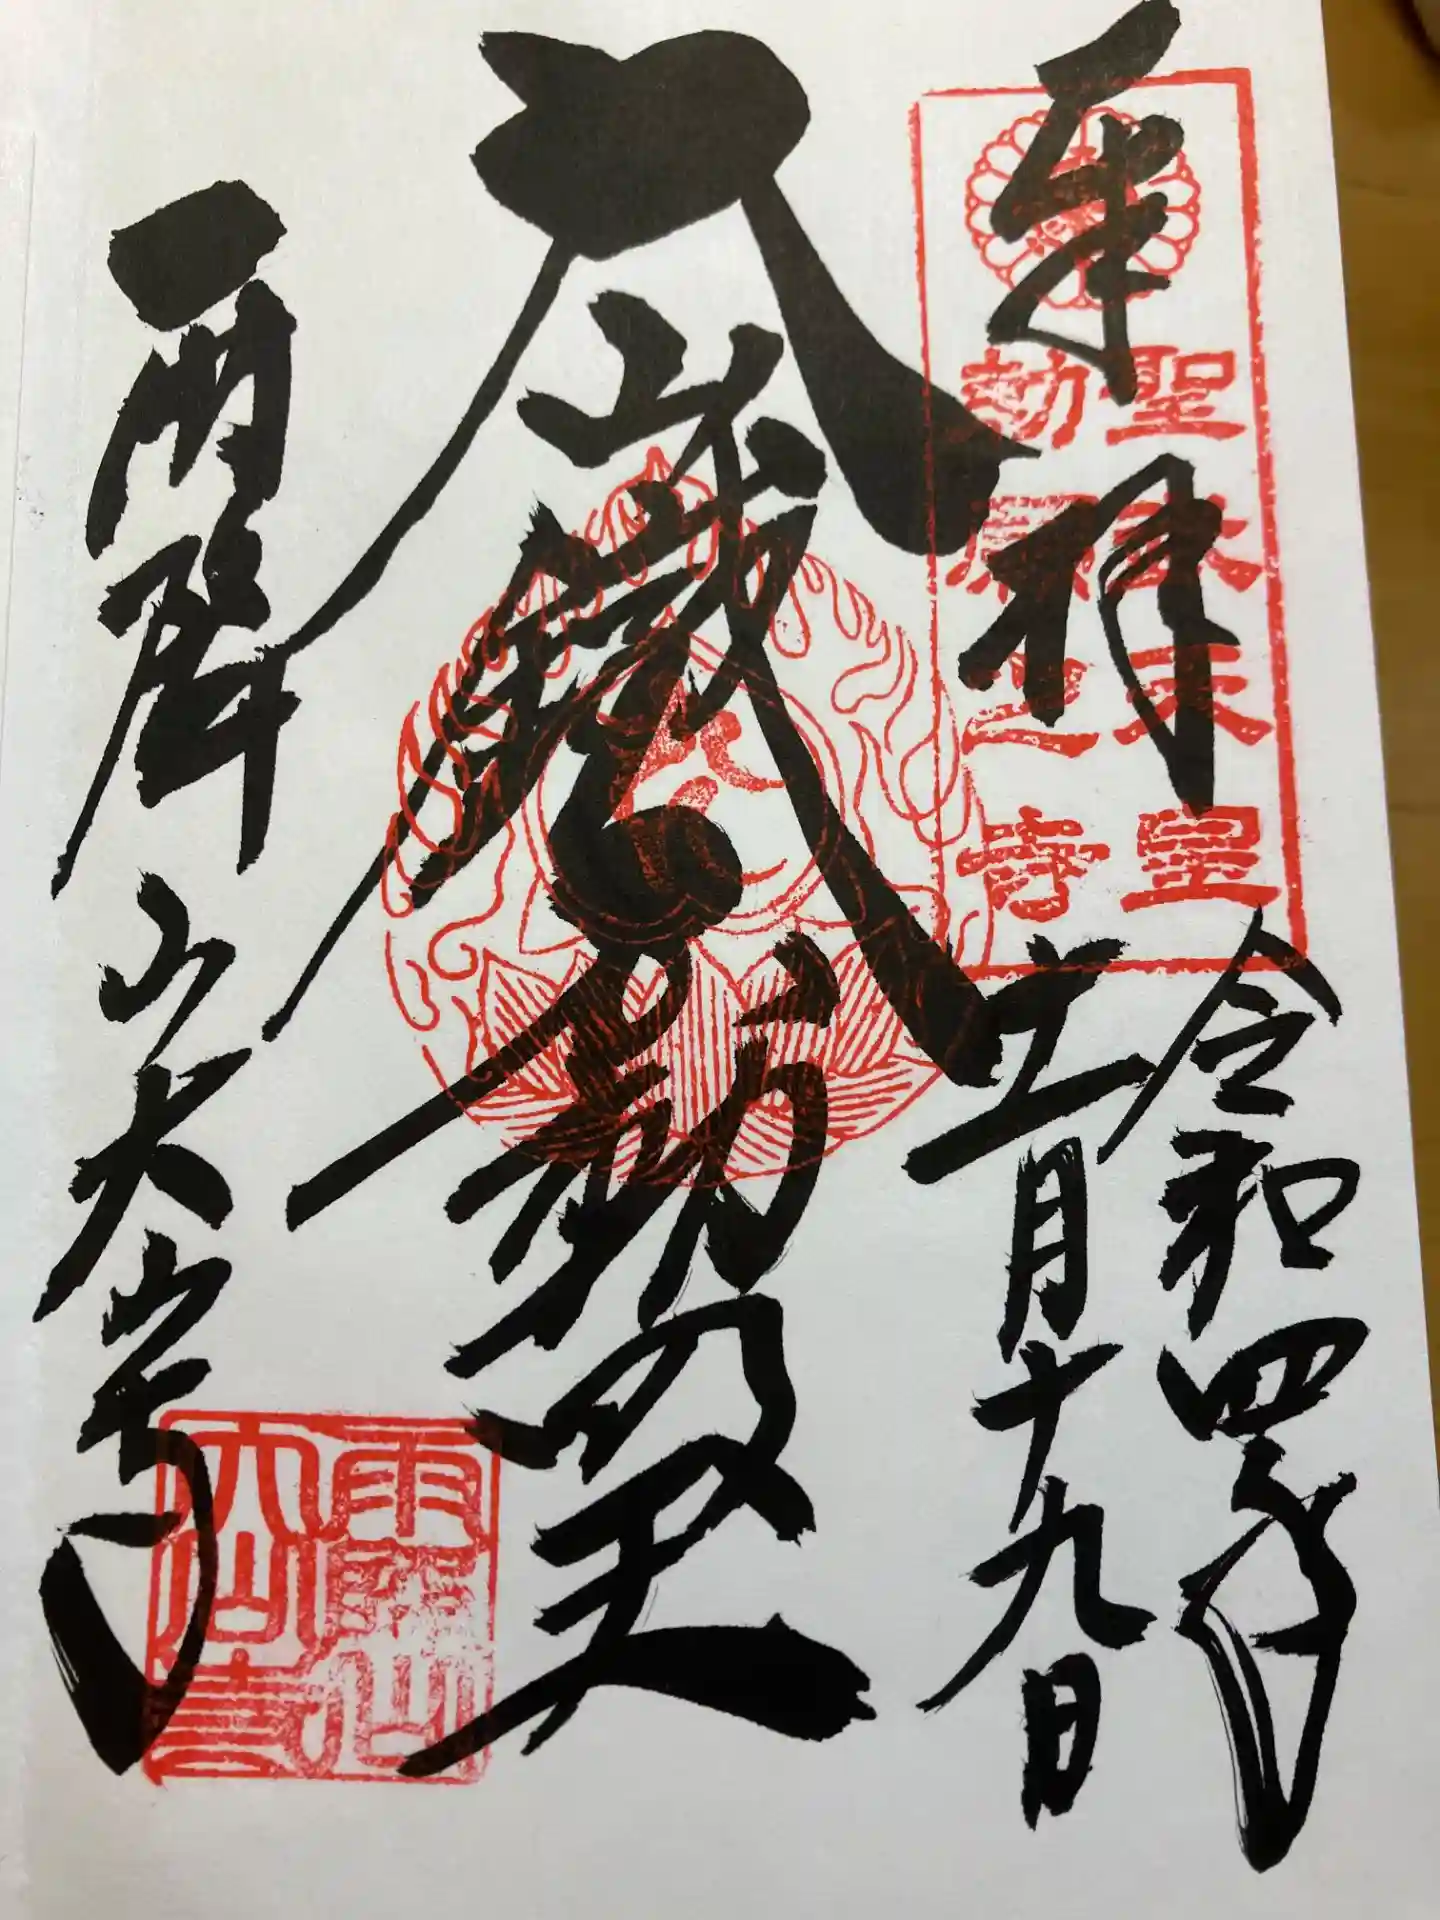 奉拝
聖武天皇
勅願之寺
令和四年
五月十九日
大山鐵不動明王
雨降山大山寺
雨降山
大山寺